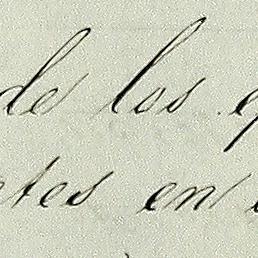 de los q
ntes en